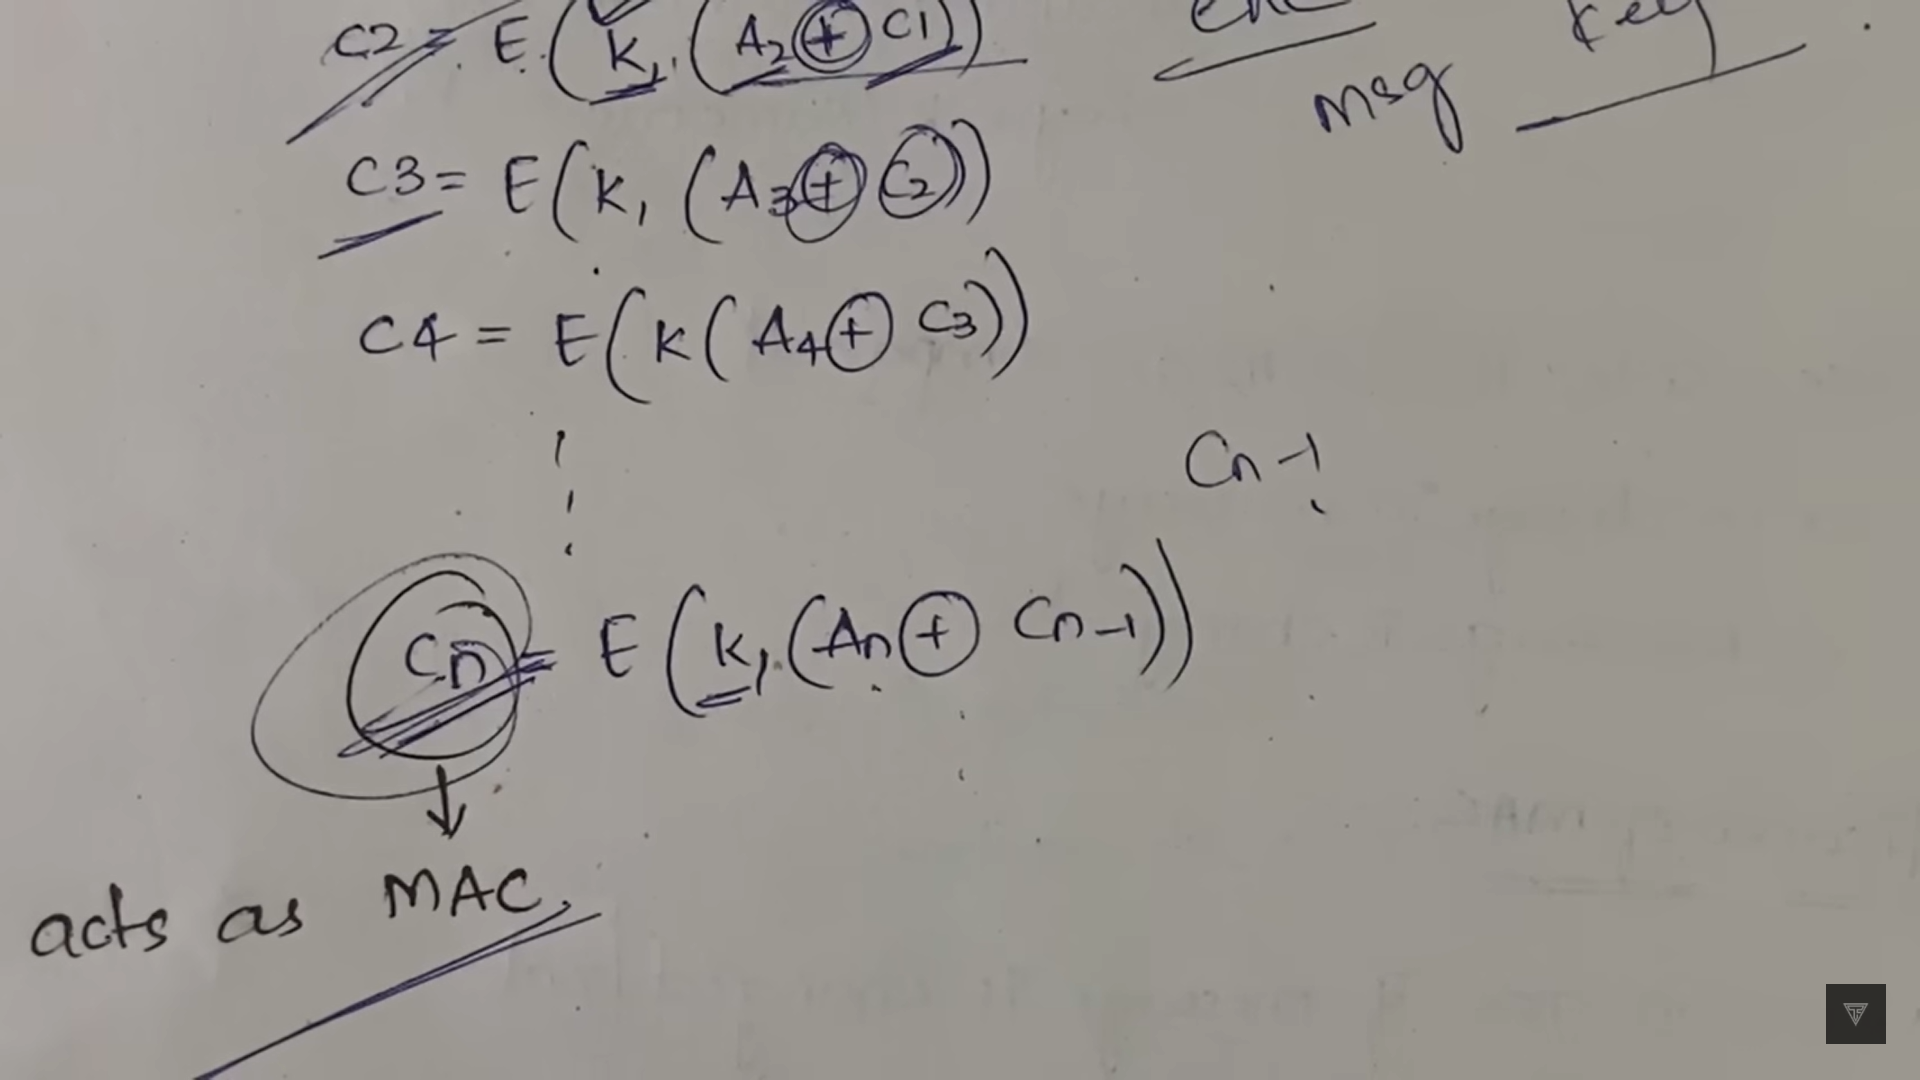 C2 = E(K, (A2 ⊕ C1))
msg key
C3 = E(K, (A3 ⊕ C2))
C4 = E(K(A4 ⊕ C3))
Cn-1
Cn = E(K, (An ⊕ Cn-1))
acts as MAC.